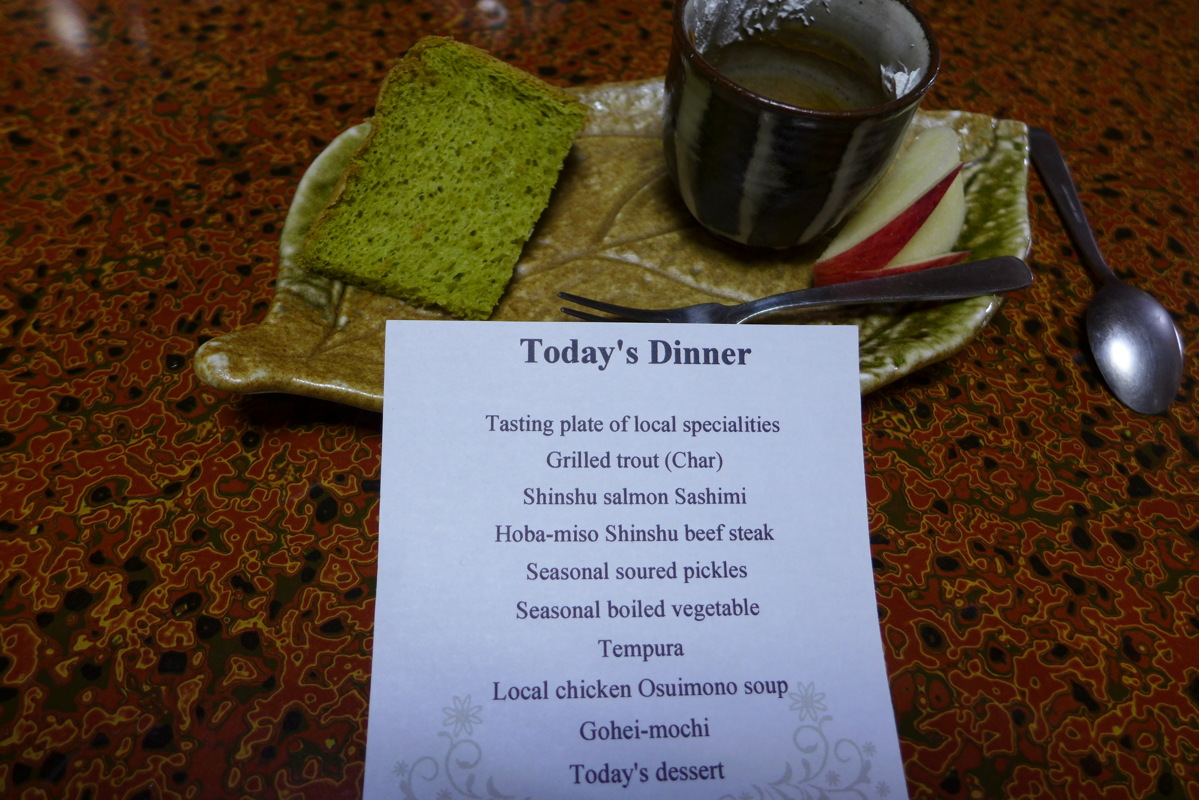 Today's Dinner
Tasting plate of local specialities
Grilled trout (Char)
Shinshu salmon Sashimi
Hoba-miso Shinshu beef steak
Seasonal soured pickles
Seasonal boiled vegetable
Tempura
Local chicken Osuimono soup
Gohei-mochi
Today's dessert